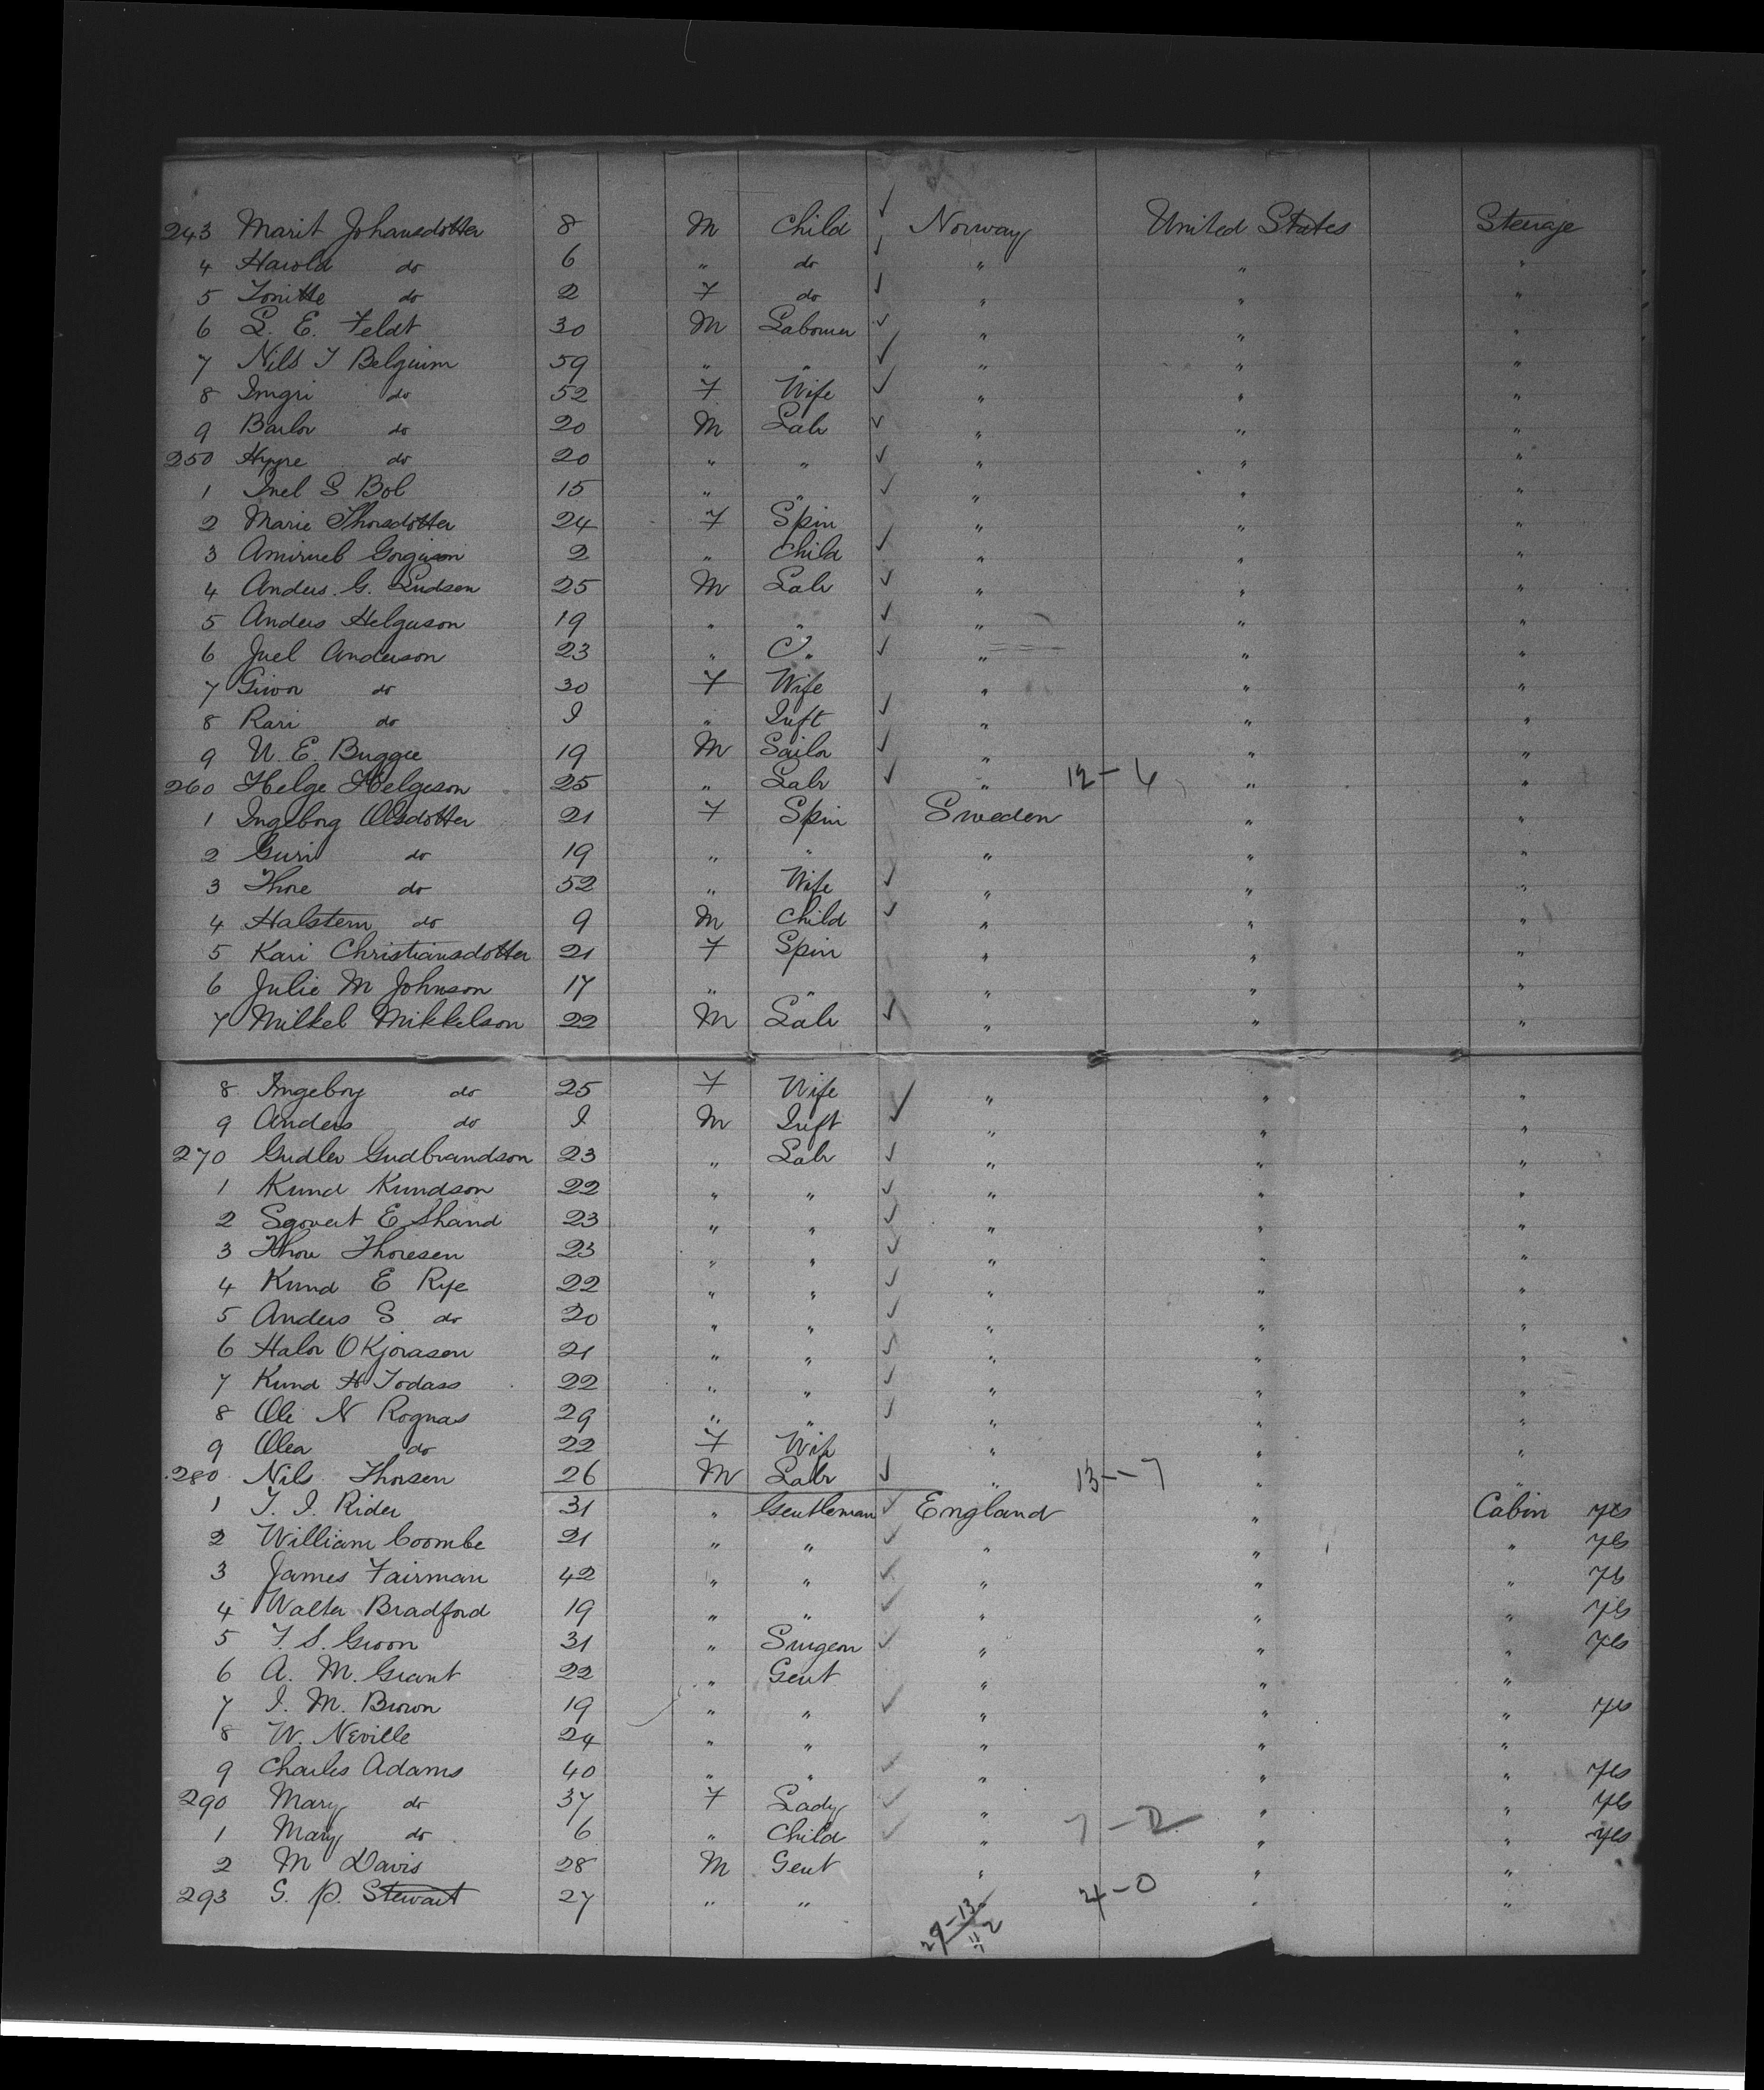 243 Marit Johansdotter 8 M Child ✓ Norway United States Steerage
4 Harold do 6 " do ✓ " " "
5 Tonitte do 2 F do ✓ " " "
6 L. E. Feldt 30 M Labourer ✓ " " "
7 Nils T Belguim 59 " " ✓ " " "
8 Imgri do 52 F Wife ✓ " " "
9 Barlor do 20 M Labr ✓ " " "
250 Hyyre do 20 " " ✓ " " "
1 Inel S Bol 15 " " ✓ " " "
2 Marie Thorsdotter 24 F Spin " " "
3 Gorguson 2 " Child ✓ " " "
4 Anders. G. Ludson 25 M Labr ✓ " " "
5 Anders Helguson 19 " " ✓ " " "
6 Juel Anderson 23 " " ✓ " " "
7 Givor do 30 F Wife " " "
8 Kari do I " Inft ✓ " " "
9 N. E. Buggee 19 M Sailor ✓ " " "
260 Helge Helgeson 25 " Labr ✓ " 12-6 " "
1 Ingeborg Olsdotter 21 F Spin Sweden " "
2 Guri do 19 " " " " "
3 Thore do 52 " Wife ✓ " " "
4 Halstern do 9 M Child ✓ " " "
5 Kari Christiansdotter 21 F Spin " " "
6 Julie M Johnson 17 " " " " "
7 Milkel Mikkelson 22 M Labr ✓ " " "
8 Ingeborg do 25 F Wife ✓ " " "
9 Anders do I M Inft ✓ " " "
270 Gudler Gudbrandson 23 " Labr ✓ " " "
1 Kund Kundson 22 " " ✓ " " "
2 Sgovert E Shand 23 " " ✓ " " "
3 Thore Thoresen 23 " " ✓ " " "
4 Kund E Rye 22 " " ✓ " " "
5 Anders S do 20 " " ✓ " " "
6 Halor O Kjorasen 21 " " ✓ " " "
7 Kund H Todass 22 " " ✓ " " "
8 Ole N Rognas 29 " " ✓ " " "
9 Olea do 22 F Wife " " "
280 Nils Thorsen 26 M Labr ✓ " 13--7 " "
1 T. I. Rider 31 " Gentleman ✓ England " Cabin yes
2 William Coombe 21 " " ✓ " " " yes
3 James Fairman 42 " " ✓ " " " yes
4 Walter Bradford 19 " " ✓ " " " yes
5 T. S. Groon 31 " Surgeon ✓ " " " yes
6 A. M. Grant 22 " Gent " " "
7 I. M. Brown 19 " " ✓ " " " yes
8 W. Neville 24 " " " " "
9 Charles Adams 40 " " ✓ " " " yes
290 Mary do 37 F Lady ✓ " " " yes
1 Mary do 6 " Child ✓ " 7-2 " " yes
2 M Davis 28 M Gent " " "
293 S. P. Stewart 27 " " 4-0 " "
29-13
11 2